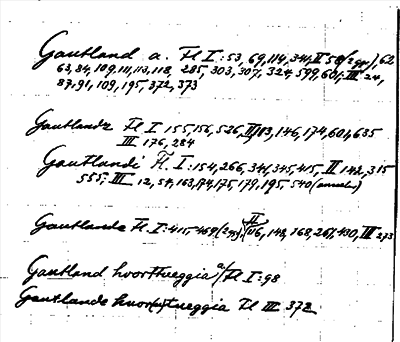 Gautland a. Fl I: 53, 69, 114, 341, II 58 (2 gr), 62
63, 84, 109, 111, 113, 118, 285, 303, 307, 324, 599, 601, III 24,
87, 91, 109, 195, 372, 373
Gautlandz Fl I 155, 156, 526, II, 113, 146, 174, 601, 635
III 176, 284
Gautlandi Fl. I: 154, 266, 341, 345, 415, II 142, 315
555, III 12, 59, 163, 174, 175, 179, 195, 540
Gautlande Fl. I: 411, 469 (2 gr), II 116, 148, 168, 267, 430, III 273
Gautland hvorttueggia a/ Fl I: 98
Gautlande huor(u)tueggia Fl III 372